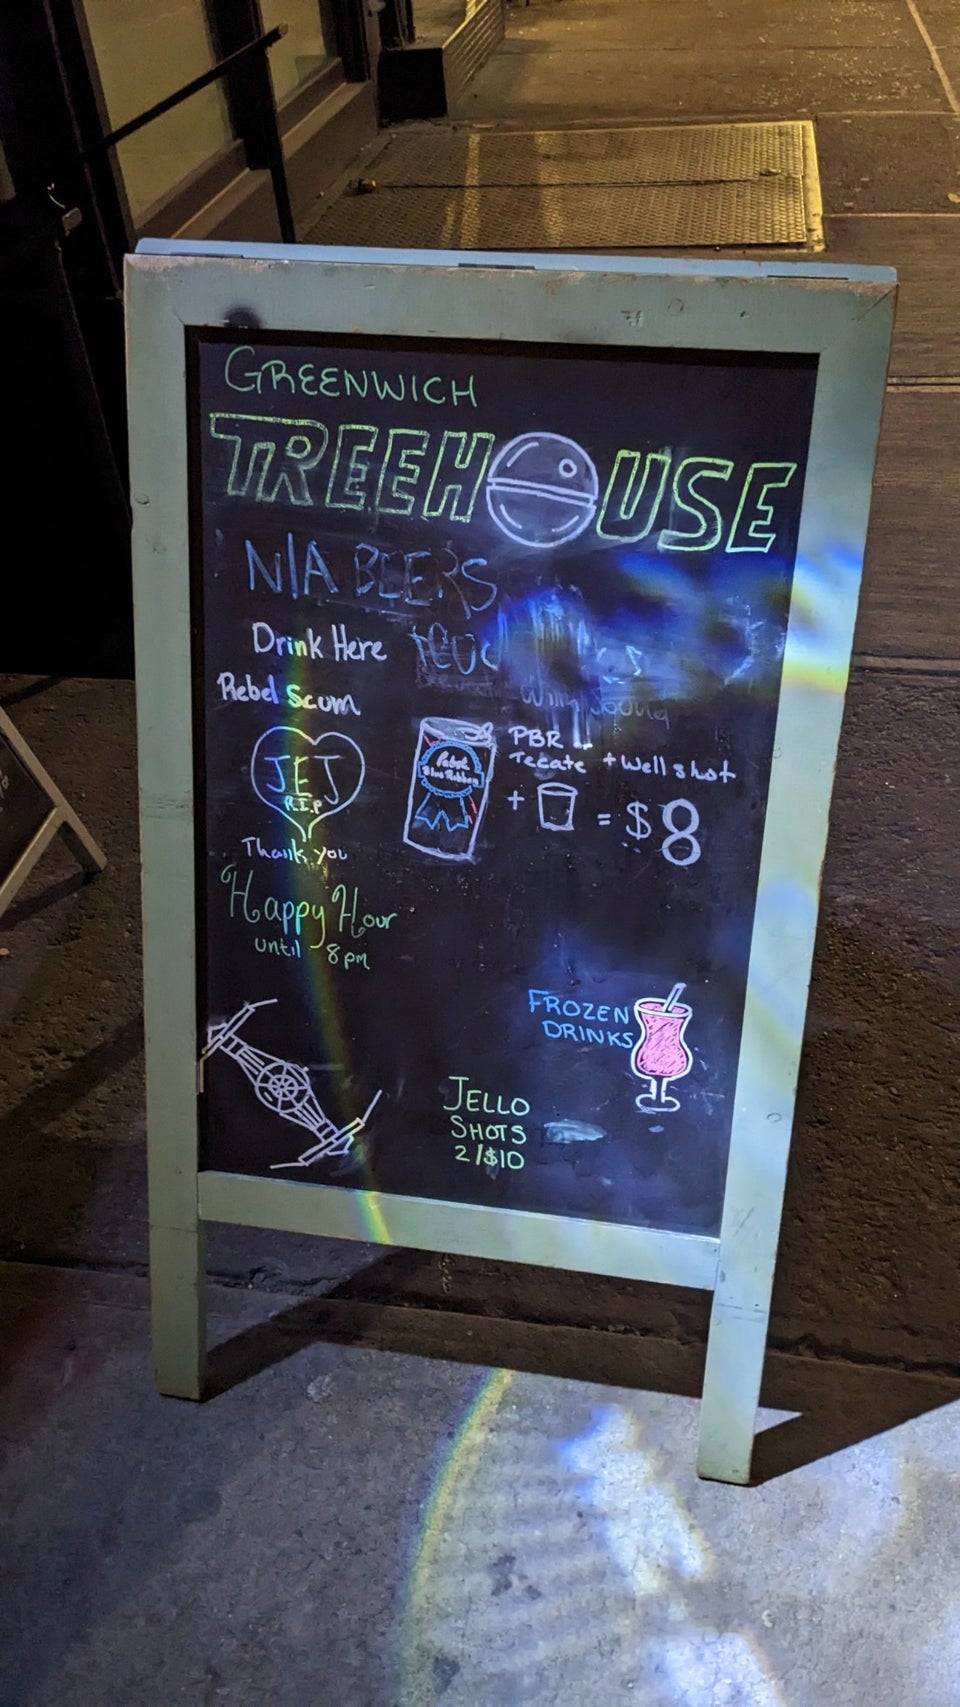 GREENWICH
TREEHOUSE
N/A BEERS
Drink Here
Rebel Scum
JEJ
R.I.P
Thank you
Pabst
Blue Ribbon
PBR
Tecate + Well shot
+ = $8
Happy Hour
until 8pm
FROZEN
DRINKS
JELLO
SHOTS
2/$10